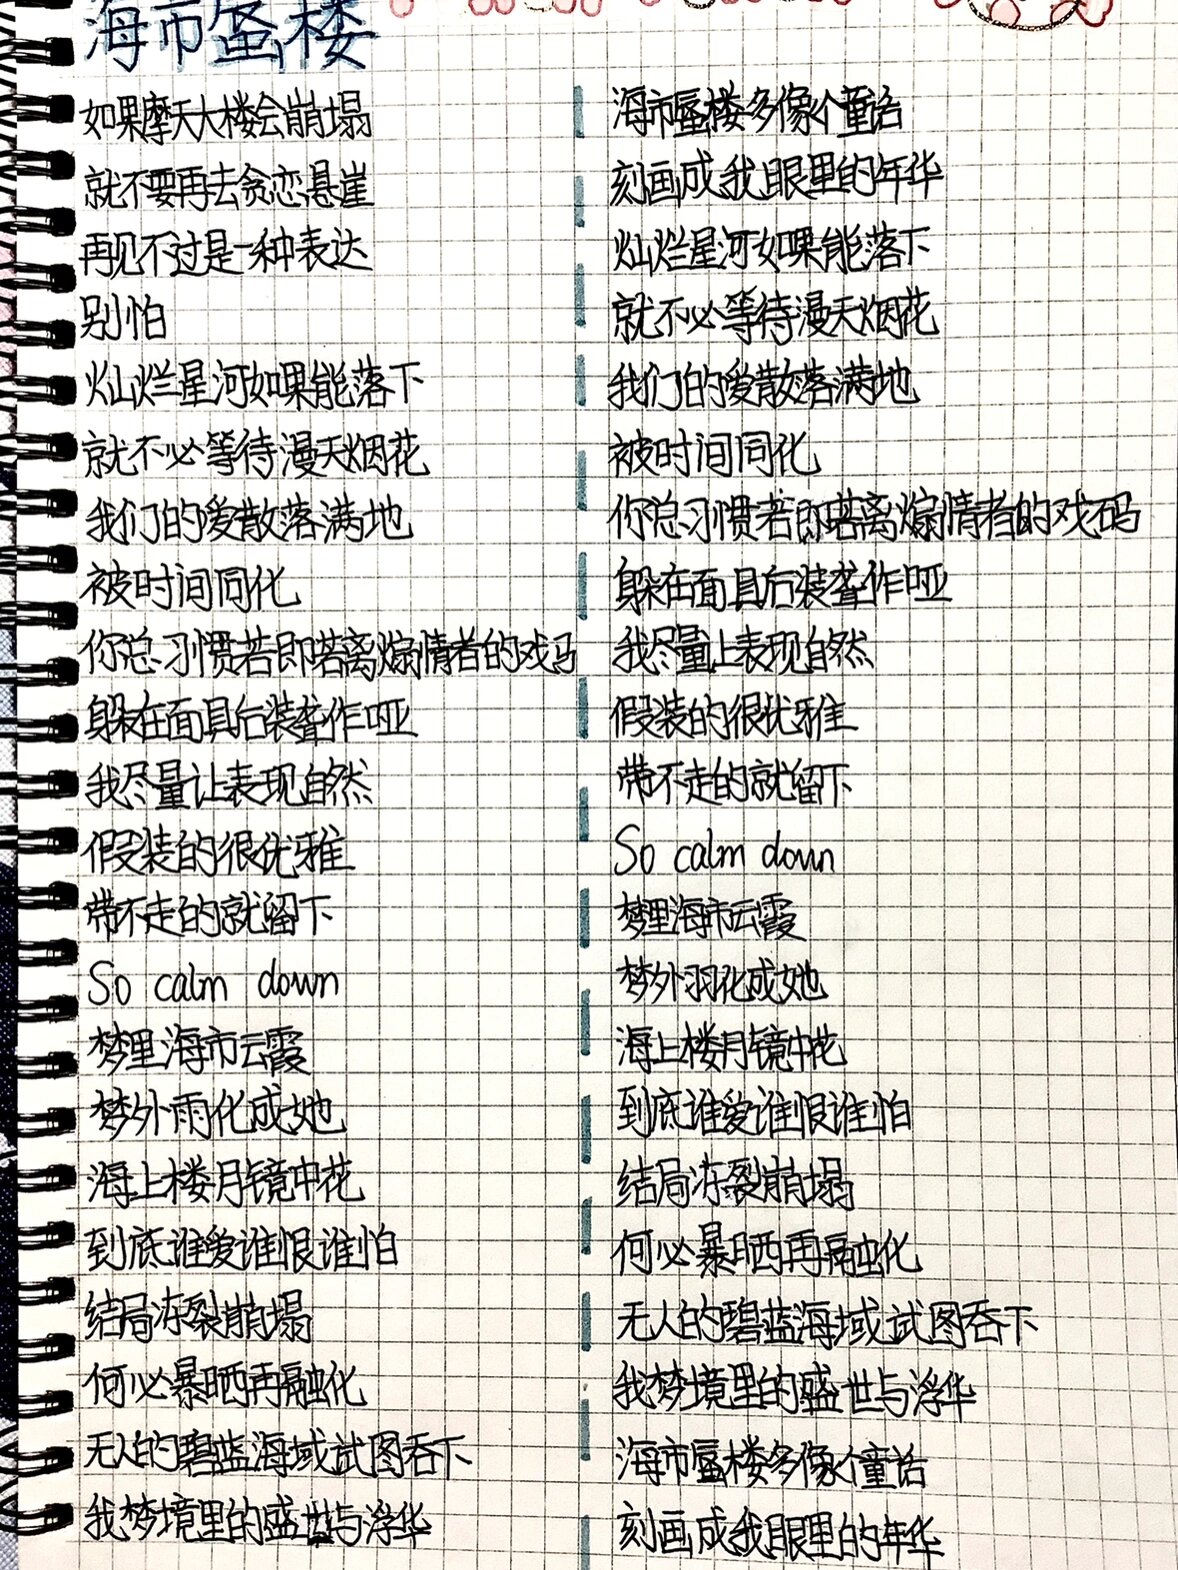 海市蜃楼
如果摩天大楼会崩塌
就不要再去贪恋悬崖
再见不过是一种表达
别怕
灿烂星河如果能落下
就不必等待漫天烟花
我们的爱散落满地
被时间同化
你总习惯若即若离煽情者的戏马
躲在面具后装聋作哑
我尽量让表现自然
假装的很优雅
带不走的就留下
So calm down
梦里海市云霞
梦外雨化成她
海上楼月镜中花
到底谁爱谁恨谁怕
结局冻裂崩塌
何必暴晒再融化
无人的碧蓝海域试图吞下
我梦境里的盛世与浮华
海市蜃楼多像个童话
刻画成我眼里的年华
灿烂星河如果能落下
就不必等待漫天烟花
我们的爱散落满地
被时间同化
你总习惯若即若离煽情者的戏码
躲在面具后装聋作哑
我尽量上表现自然
假装的很优雅
带不走的就留下
So calm down
梦里海市云霞
梦外羽化成她
海上楼月镜中花
到底谁爱谁恨谁怕
结局冻裂崩塌
何必暴晒再融化
无人的碧蓝海域试图吞下
我梦境里的盛世与浮华
海市蜃楼多像个童话
刻画成我眼里的年华